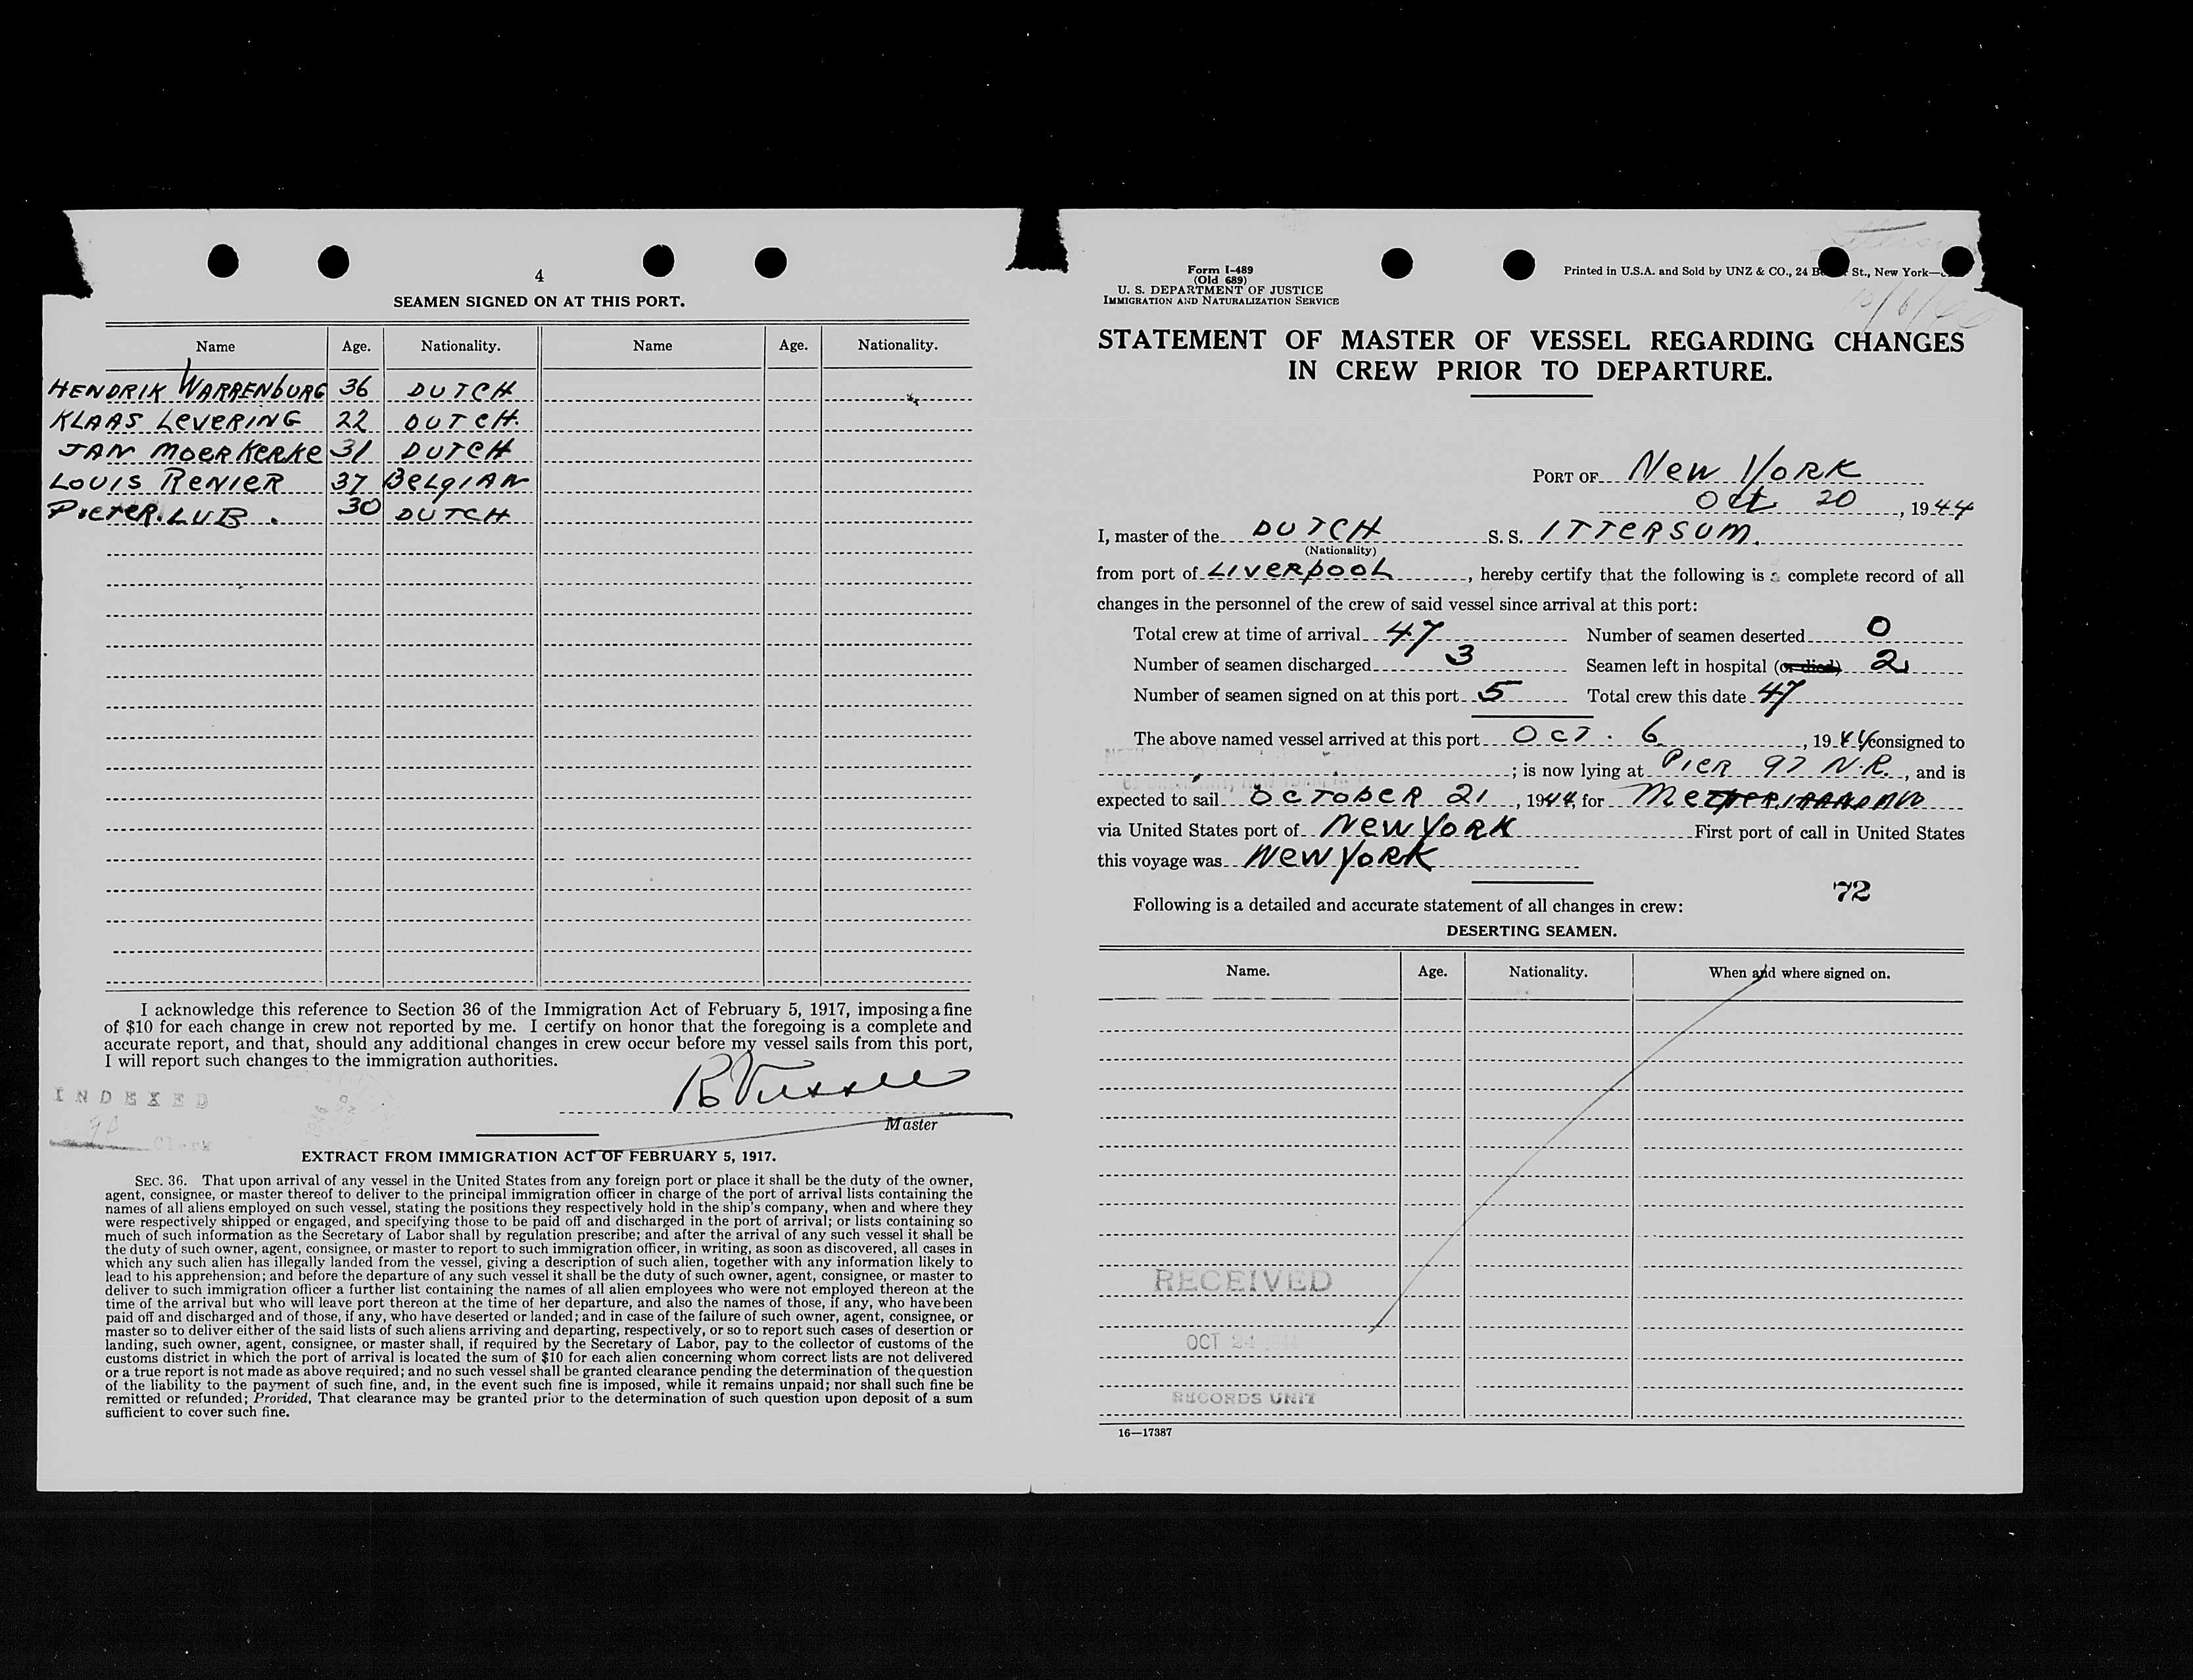 4
SEAMEN SIGNED ON AT THIS PORT.
Name Age. Nationality. Name Age. Nationality.
HENDRIK WARRENBURG 36 DUTCH
KLAAS LEVERING 22 DUTCH.
JAN MOERKERKE 31 DUTCH
LOUIS RENIER 37 BELGIAN
PIETER LUB. 30 DUTCH
I acknowledge this reference to Section 36 of the Immigration Act of February 5, 1917, imposing a fine
of $10 for each change in crew not reported by me. I certify on honor that the foregoing is a complete and
accurate report, and that, should any additional changes in crew occur before my vessel sails from this port,
I will report such changes to the immigration authorities.
INDEXED
Clerk
Master
EXTRACT FROM IMMIGRATION ACT OF FEBRUARY 5, 1917.
SEC. 36. That upon arrival of any vessel in the United States from any foreign port or place it shall be the duty of the owner,
agent, consignee, or master thereof to deliver to the principal immigration officer in charge of the port of arrival lists containing the
names of all aliens employed on such vessel, stating the positions they respectively hold in the ship's company, when and where they
were respectively shipped or engaged, and specifying those to be paid off and discharged in the port of arrival; or lists containing so
much of such information as the Secretary of Labor shall by regulation prescribe; and after the arrival of any such vessel it shall be
the duty of such owner, agent, consignee, or master to report to such immigration officer, in writing, as soon as discovered, all cases in
which any such alien has illegally landed from the vessel, giving a description of such alien, together with any information likely to
lead to his apprehension; and before the departure of any such vessel it shall be the duty of such owner, agent, consignee, or master to
deliver to such immigration officer a further list containing the names of all alien employees who were not employed thereon at the
time of the arrival but who will leave port thereon at the time of her departure, and also the names of those, if any, who have been
paid off and discharged and of those, if any, who have deserted or landed; and in case of the failure of such owner, agent, consignee, or
master so to deliver either of the said lists of such aliens arriving and departing, respectively, or so to report such cases of desertion or
landing, such owner, agent, consignee, or master shall, if required by the Secretary of Labor, pay to the collector of customs of the
customs district in which the port of arrival is located the sum of $10 for each alien concerning whom correct lists are not delivered
or a true report is not made as above required; and no such vessel shall be granted clearance pending the determination of the question
of the liability to the payment of such fine, and, in the event such fine is imposed, while it remains unpaid; nor shall such fine be
remitted or refunded; Provided, That clearance may be granted prior to the determination of such question upon deposit of a sum
sufficient to cover such fine.
Form I-489
(Old 689)
U. S. DEPARTMENT OF JUSTICE
IMMIGRATION AND NATURALIZATION SERVICE
Printed in U.S.A. and Sold by UNZ & CO., 24 St., New York
STATEMENT OF MASTER OF VESSEL REGARDING CHANGES
IN CREW PRIOR TO DEPARTURE.
PORT OF New York
Oct 20, 1944
I, master of the DUTCH S. S. ITTERSUM.
(Nationality)
from port of LIVERPOOL, hereby certify that the following is a complete record of all
changes in the personnel of the crew of said vessel since arrival at this port:
Total crew at time of arrival 47 Number of seamen deserted 0
Number of seamen discharged 3 Seamen left in hospital (or died) 2
Number of seamen signed on at this port 5 Total crew this date 47
The above named vessel arrived at this port OCT. 6, 1944 consigned to
; is now lying at PIER 97 N.R., and is
expected to sail OCTOBER 21, 1944, for
via United States port of NEW YORK First port of call in United States
this voyage was NEW YORK
72
Following is a detailed and accurate statement of all changes in crew:
DESERTING SEAMEN.
Name. Age. Nationality. When and where signed on.
RECEIVED
OCT 24
RECORDS UNIT
16—17387